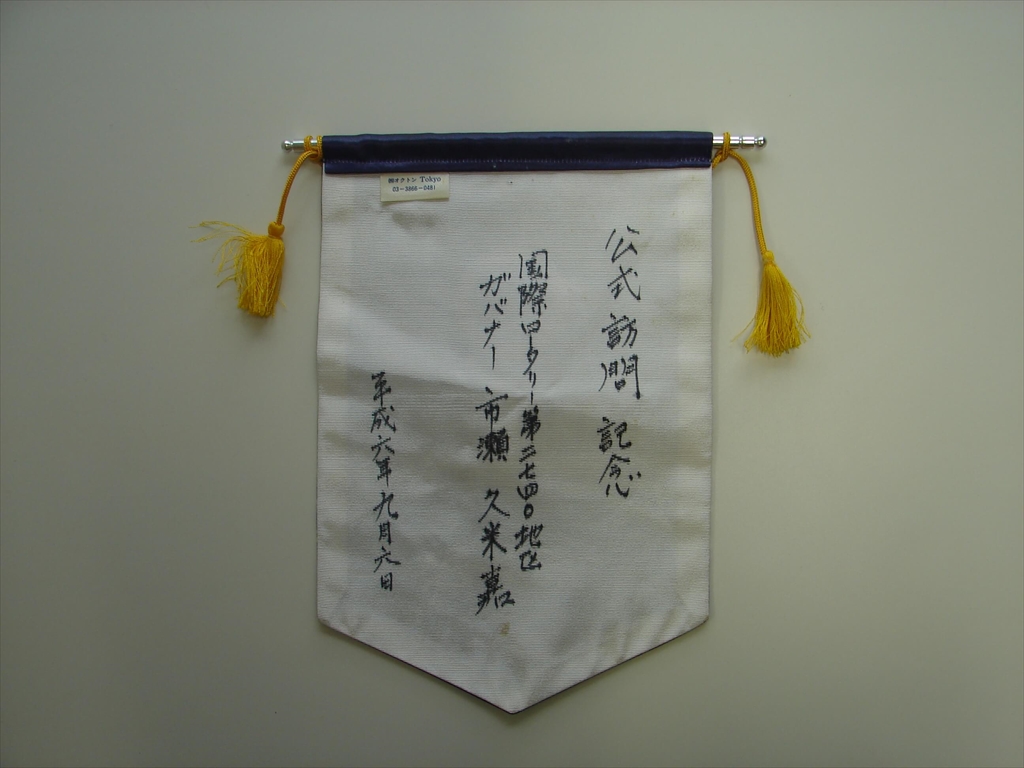 公式訪問 記念
国際ロータリー第二七四〇地区
ガバナー 市瀬 久米嘉
平成六年九月六日
㈱オクトン Tokyo
03-3866-0481